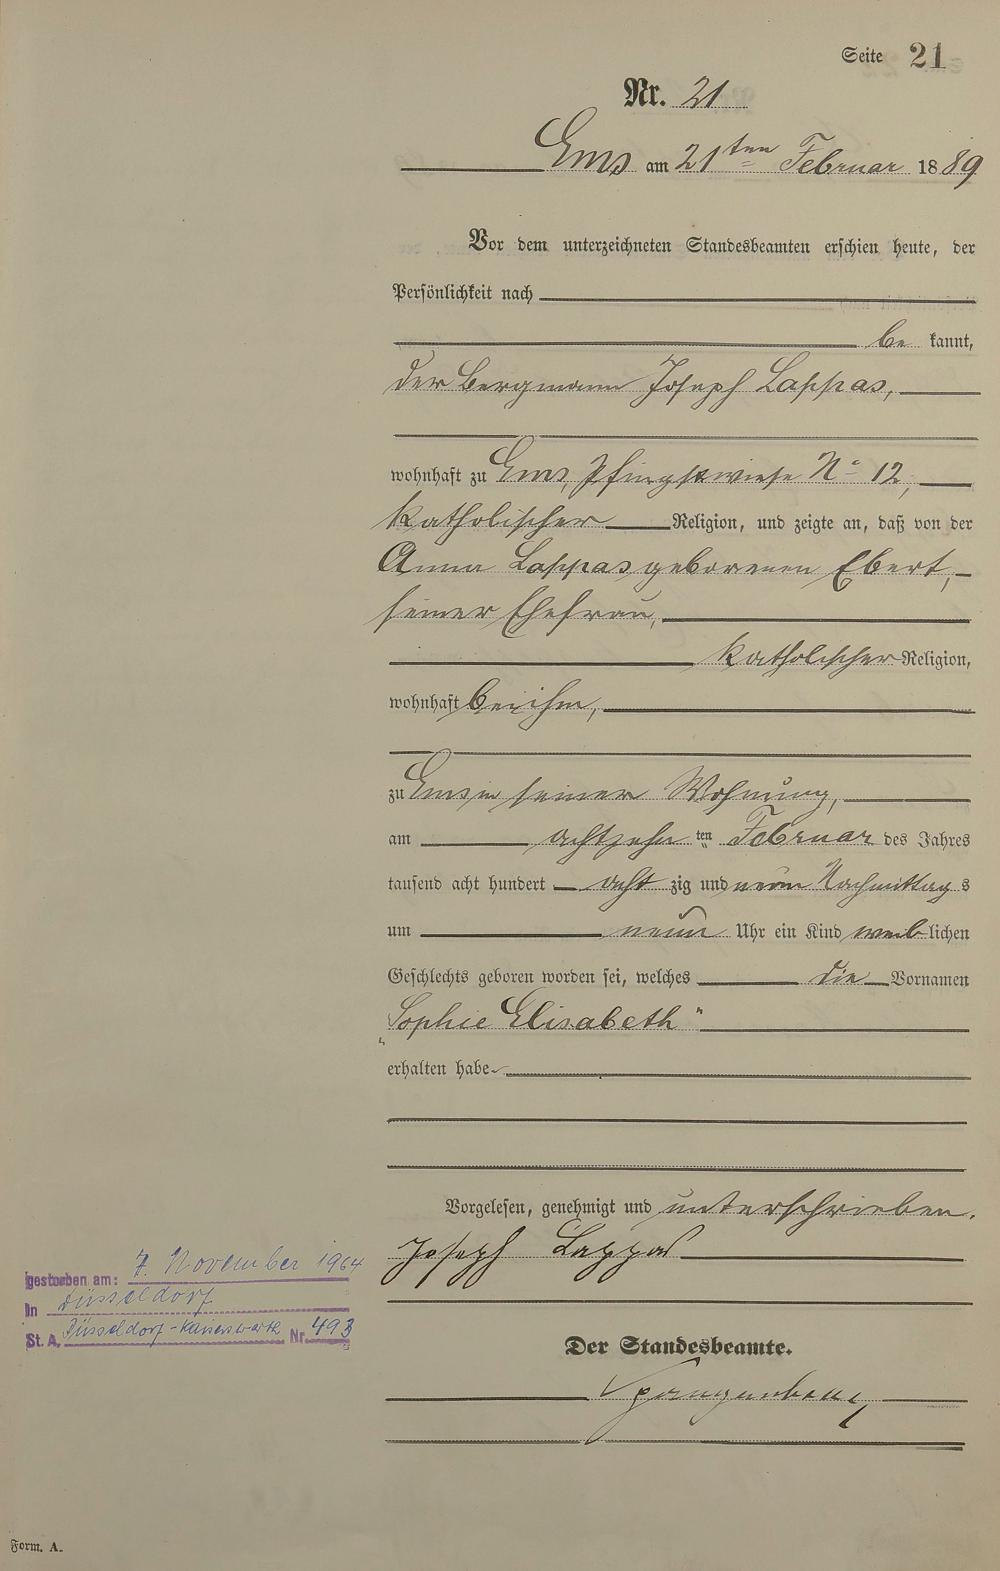 Seite 21
Nr. 21
Ems am 21ten Februar 1889
Vor dem unterzeichneten Standesbeamten erschien heute, der
Persönlichkeit nach
be kannt,
der Bergmann Joseph Lappas,
wohnhaft zu Ems, Pfingstwiese No 12,
katholischer Religion, und zeigte an, daß von der
Anna Lappas geborenen Ebert,
seiner Ehefrau,
katholischer Religion,
wohnhaft bei ihm,
zu Ems in seiner Wohnung,
am achtzehn ten Februar des Jahres
tausend acht hundert acht zig und neun Nachmittags
um neun Uhr ein Kind weiblichen
Geschlechts geboren worden sei, welches die Vornamen
„Sophie Elisabeth"
erhalten habe
Vorgelesen, genehmigt und unterschrieben.
Joseph Lappas
Der Standesbeamte.
gestorben am: 7. November 1964
in Düsseldorf
St. A. Düsseldorf-Kaiserswerth Nr. 493
Form. A.